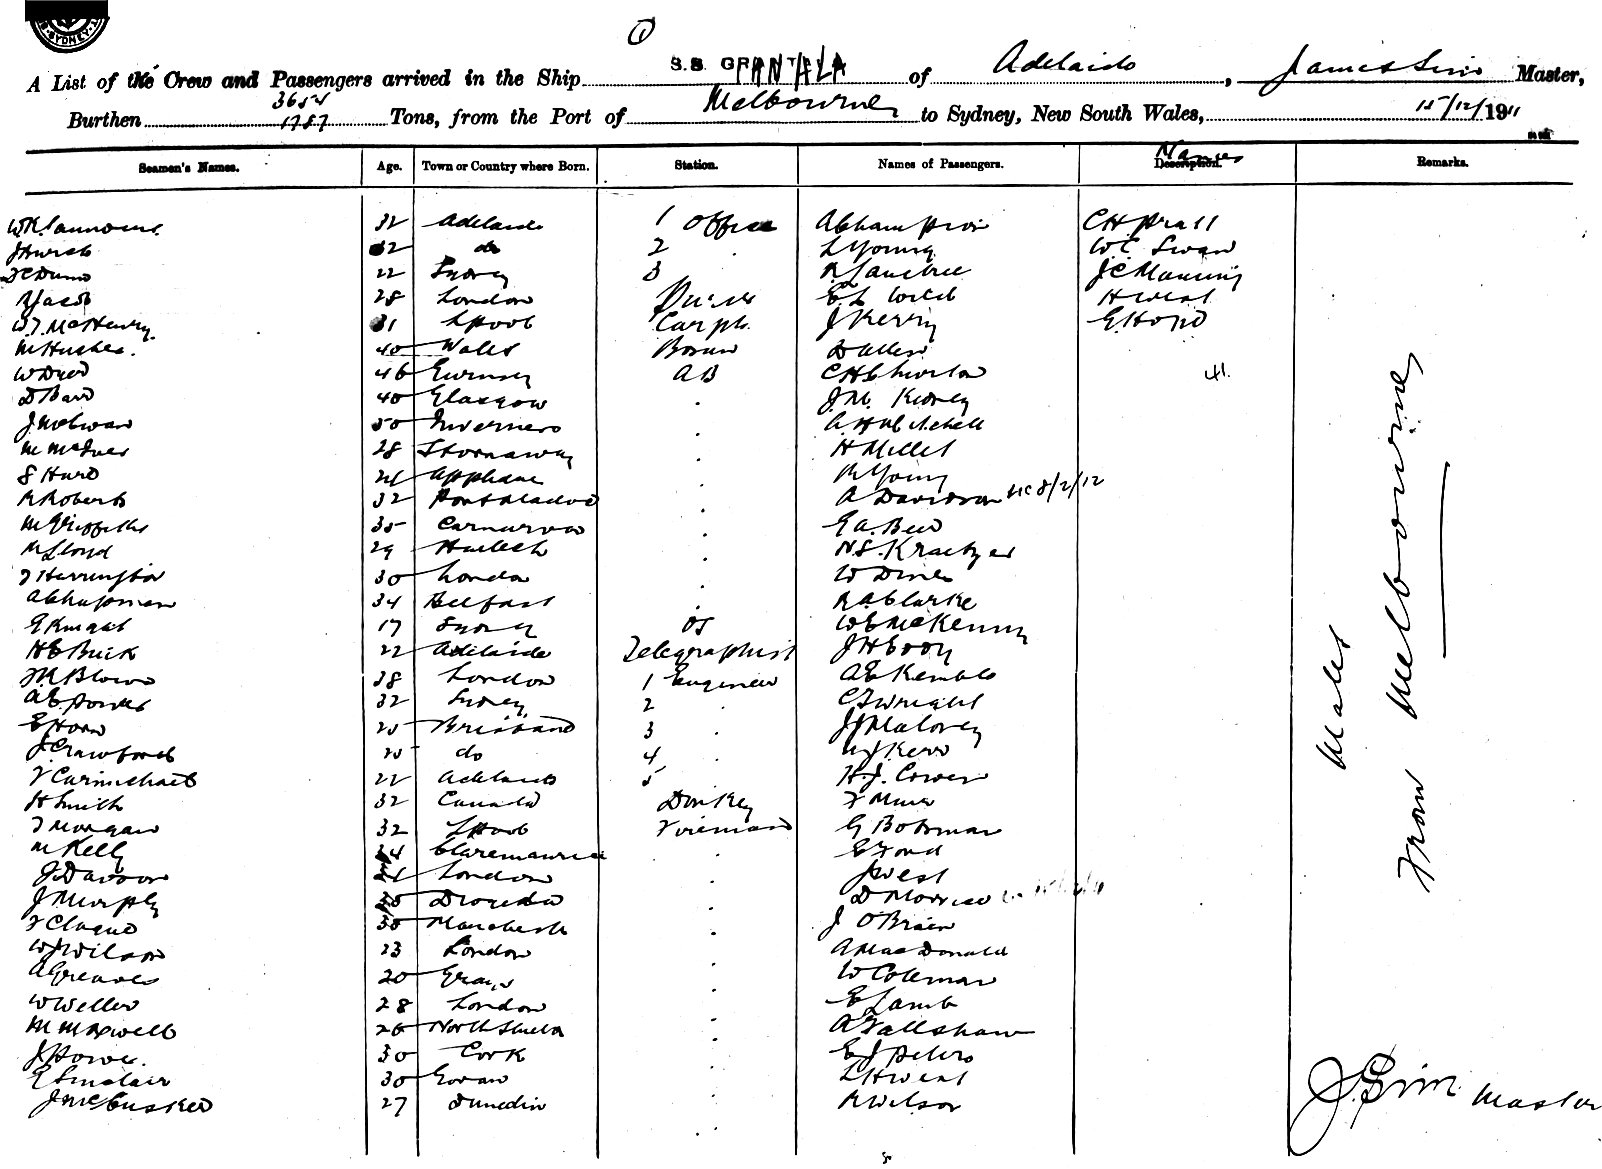 SYDNEY
A List of the Crew and Passengers arrived in the Ship S.S. GRANTALA of Adelaide, James Sim Master,
Burthen 3654 1787 Tons, from the Port of Melbourne to Sydney, New South Wales, 15/12/1911
Seamen's Names. Age. Town or Country where Born. Station. Names of Passengers. Description. Names Remarks.
32 Adelaide 1 Officer A Champion C H Pratt
J Hurst 32 do 2 L Young W C Swan
F C Dunn 22 Sydney 3 R J C Manning
R Jacob 28 London Purser E L Wild H West
W J McHenry 31 L'pool Carptr. J Kerry E Hopid
M Hughes. 40 Wales Bosun D Allen
W Dyer 46 Guernsey AB C H Churston 41.
D Barr 40 Glasgow J. M. Kidney
J McEwan 50 Inverness A H Mitchell
M McIver 28 Stornaway H Millet
S Hurd 21 Appham R Young
R Roberts 32 Portmadoc A Davidson 8/2/12
M Griffiths 35 Carnarvon E A. Bew
M Lloyd 29 Harlech N S. Kraetzer
J Harrington 30 London W Dines
A Chapman 34 Belfast R A Clarke
E Knight 17 Sydney OS W E McKenny
H E Buik 22 Adelaide Telegraphist J H Eddy
M Blown 38 London 1 Engineer A E Kemble
A E Powes 32 Sydney 2 C J Wright
E Horn 25 Brisbane 3 J J Maloney
J Crawford 25 do 4 W J Kerr
F Carmichael 22 Adelaide 5 H. J. Cowen
H Smith 32 Canada Donkey F Muir
J Morgan 32 L'pool Fireman G Boltman
M Kelly 34 Claremorris E Ford
J Davson 21 London J West
J Murphy 30 Drogheda D Morriso
F Clague 30 Manchester J O'Brien
W J Wilson 23 London A MacDonald
A Greaves 20 Grays W Coleman
W Weller 28 London E Lamb
M Maxwell 26 North Shields A Fallshaw
J Howe. 30 Cork E J Peters
E Sinclair 30 Govan L H West
J McCusker 27 Dunedin R Wilson
Males
From Melbourne
J. Sim Master